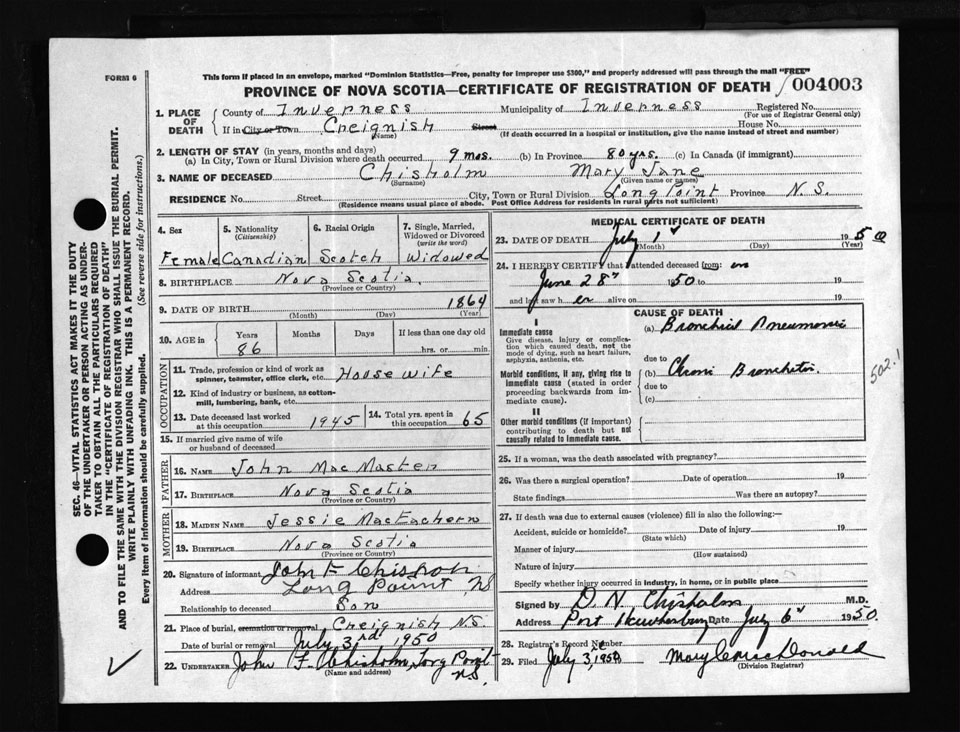 FORM 6
This form if placed in an envelope, marked "Dominion Statistics—Free, penalty for improper use $300," and properly addressed will pass through the mail "FREE"
PROVINCE OF NOVA SCOTIA—CERTIFICATE OF REGISTRATION OF DEATH 004003
1. PLACE OF DEATH County of Inverness Municipality of Inverness Registered No.
(For use of Registrar General only)
If in City or Town Creignish Street House No.
(Name) (If death occurred in a hospital or institution, give the name instead of street and number)
2. LENGTH OF STAY (in years, months and days)
(a) In City, Town or Rural Division where death occurred 9 mos. (b) In Province 80 yrs. (c) In Canada (if immigrant)
3. NAME OF DECEASED Chisholm Mary Jane
(Surname) (Given name or names)
RESIDENCE No. Street City, Town or Rural Division Long Point Province N.S.
(Residence means usual place of abode. Post Office Address for residents in rural parts not sufficient)
4. Sex 5. Nationality (Citizenship) 6. Racial Origin 7. Single, Married, Widowed or Divorced (write the word)
Female Canadian Scotch Widowed
8. BIRTHPLACE Nova Scotia.
(Province or Country)
9. DATE OF BIRTH 1864
(Month) (Day) (Year)
10. AGE in Years Months Days If less than one day old
86 hrs. or min.
OCCUPATION
11. Trade, profession or kind of work as spinner, teamster, office clerk, etc. House wife
12. Kind of industry or business, as cotton-mill, lumbering, bank, etc.
13. Date deceased last worked at this occupation 1945 14. Total yrs. spent in this occupation 65
15. If married give name of wife or husband of deceased
FATHER
16. NAME John MacMaster
17. BIRTHPLACE Nova Scotia
(Province or Country)
MOTHER
18. MAIDEN NAME Jessie MacEachern
19. BIRTHPLACE Nova Scotia
(Province or Country)
20. Signature of informant John F Chisholm
Address Long Point, NS
Relationship to deceased Son
21. Place of burial, cremation or removal Creignish N.S.
Date of burial or removal July 3rd 1950
22. UNDERTAKER John F. Chisholm, Long Point NS.
(Name and address)
MEDICAL CERTIFICATE OF DEATH
23. DATE OF DEATH July 1 1950
(Month) (Day) (Year)
24. I HEREBY CERTIFY that I attended deceased from: on
June 28" 1950 to 19
and last saw h er alive on 19
CAUSE OF DEATH
I
Immediate cause
Give disease, injury or complication which caused death, not the mode of dying, such as heart failure, asphyxia, asthenia, etc.
(a) Bronchial Pneumonia
due to
Morbid conditions, if any, giving rise to immediate cause (stated in order proceeding backwards from immediate cause).
(b) Chronic Bronchitis
due to
(c)
502.1
II
Other morbid conditions (if important) contributing to death but not causally related to immediate cause.
25. If a woman, was the death associated with pregnancy?
26. Was there a surgical operation? Date of operation 19
State findings Was there an autopsy?
27. If death was due to external causes (violence) fill in also the following:—
Accident, suicide or homicide? Date of injury 19
(State which)
Manner of injury
(How sustained)
Nature of injury
Specify whether injury occurred in industry, in home, or in public place
Signed by D. N Chisholm M.D.
Address Port Hawkesbury Date July 6" 1950.
28. Registrar's Record Number
29. Filed July 3, 1950
(Division Registrar)
SEC. 46—VITAL STATISTICS ACT MAKES IT THE DUTY
OF THE UNDERTAKER OR PERSON ACTING AS UNDER-
TAKER TO OBTAIN ALL THE PARTICULARS REQUIRED
IN THE "CERTIFICATE OF REGISTRATION OF DEATH"
AND TO FILE THE SAME WITH THE DIVISION REGISTRAR WHO SHALL ISSUE THE BURIAL PERMIT.
WRITE PLAINLY WITH UNFADING INK. THIS IS A PERMANENT RECORD.
Every item of information should be carefully supplied. (See reverse side for instructions.)